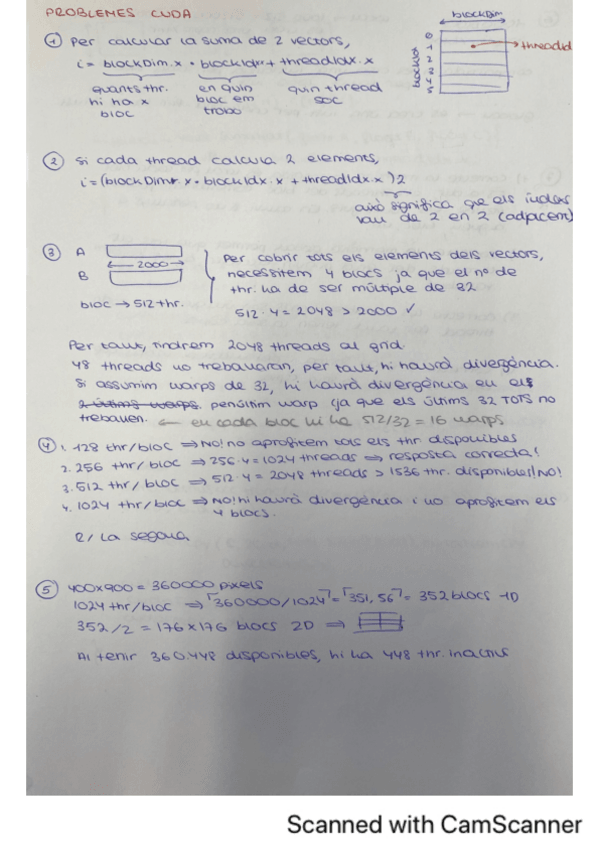 PROBLEMES CUDA
blockDim
① Per calcular la suma de 2 vectors,
i = blockDim.x * blockIdx + threadIdx.x
threadId
quants thr.
hi ha x
bloc
en quin
bloc em
trobo
quin thread
soc
② Si cada thread calcula 2 elements,
i = (blockDim.x * blockIdx.x + threadIdx.x) 2
això significa que els índexs
van de 2 en 2 (adjacent)
③ A
2000
B
bloc → 512 thr.
Per cobrir tots els elements dels vectors,
necessitem 4 blocs ja que el nº de
thr. ha de ser múltiple de 32
512 · 4 = 2048 > 2000 ✓
Per tant, tindrem 2048 threads al grid.
48 threads no treballaran, per tant, hi haurà divergència.
Si assumim warps de 32, hi haurà divergència en els
2 últims warps. penúltim warp (ja que els últims 32 TOTS no
treballen. ← en cada bloc hi ha 512/32 = 16 warps
④ 1. 128 thr/bloc ⇒ No! no aprofitem tots els thr disponibles
2. 256 thr/bloc ⇒ 256·4 = 1024 threads ⇒ resposta correcta!
3. 512 thr/bloc ⇒ 512·4 = 2048 threads > 1536 thr. disponibles! NO!
4. 1024 thr/bloc ⇒ No! hi haurà divergència i no aprofitem els
4 blocs.
R/ La segona
⑤ 400x900 = 360000 píxels
1024 thr/bloc ⇒ ⌈360000/1024⌉ = ⌈351,56⌉ = 352 blocs 1D
352/2 = 176 x 176 blocs 2D ⇒
Al tenir 360.448 disponibles, hi ha 448 thr. inactius
Scanned with CamScanner